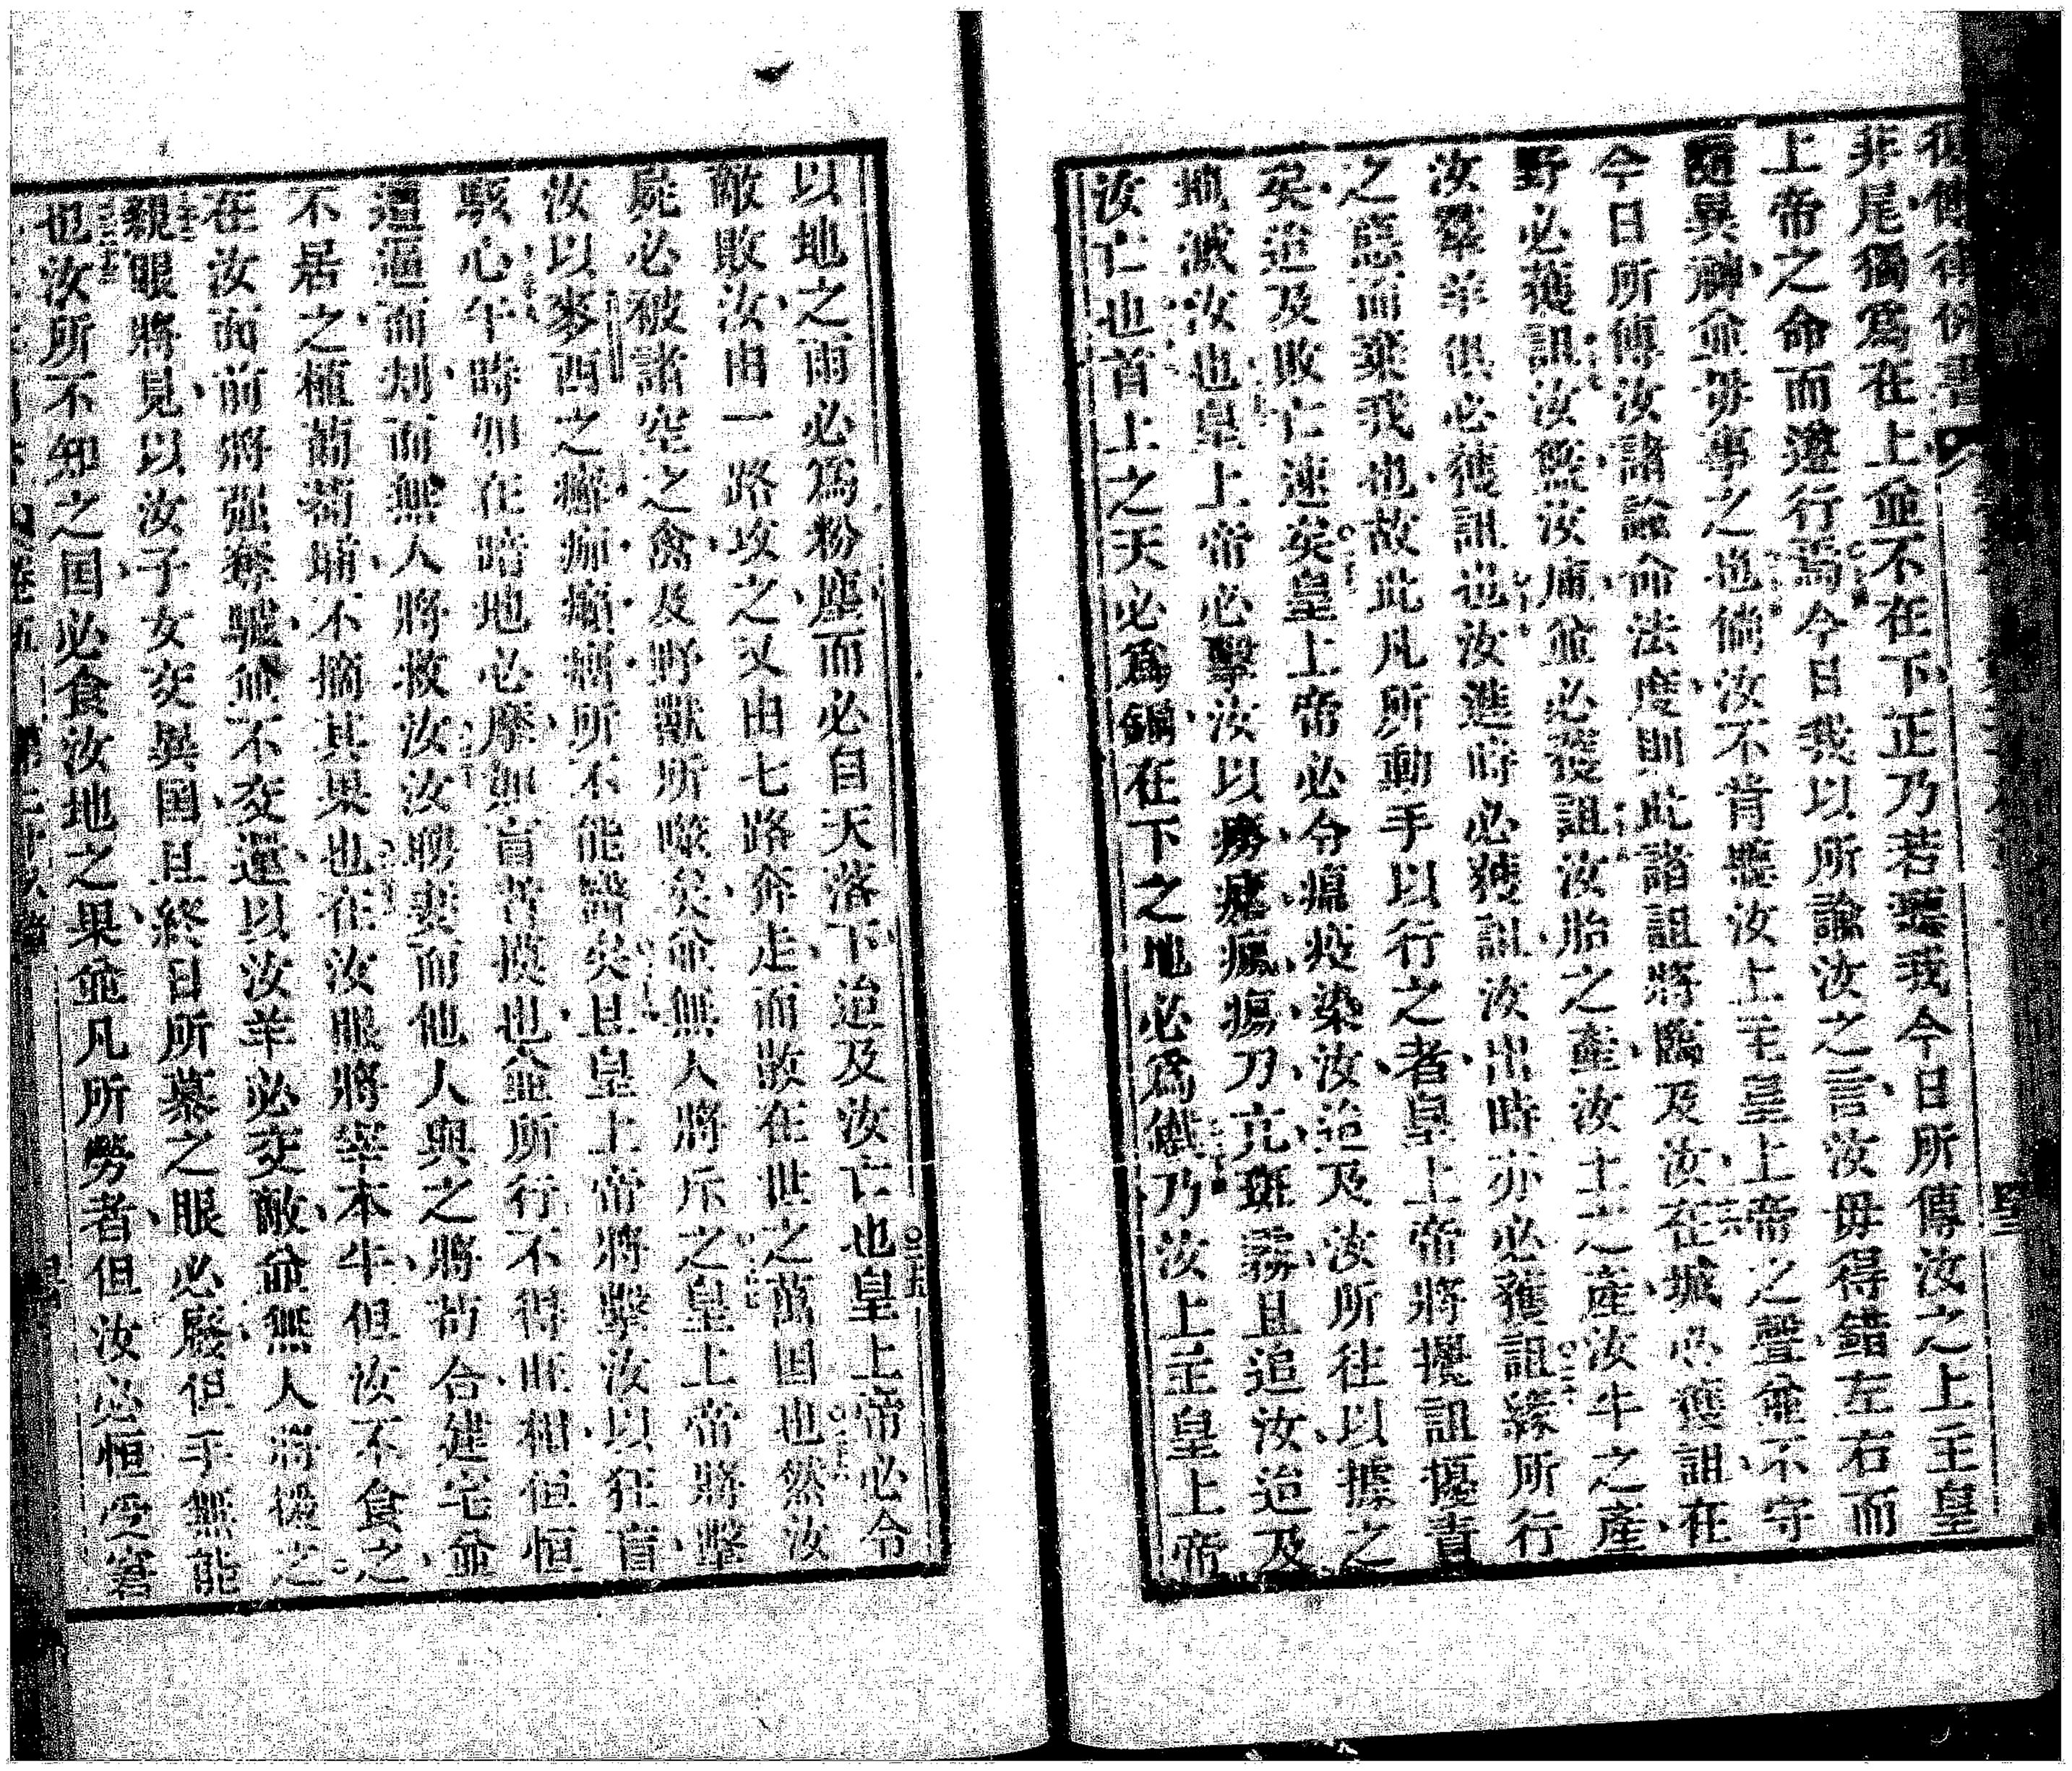 復傳律例書
非尾獨爲在上並不在下正乃若聽我今日所傳汝之上主皇
上帝之命而遵行焉今日我以所諭汝之言汝毋得錯左右而
隨異神並毋事之也倘汝不肯聽汝上主皇上帝之聲並不守
今日所傳汝諸諭命法度則此諸詛將臨及汝在城必獲詛在
野必獲詛汝籃汝庫並必獲詛汝胎之產汝土之產汝牛之產
汝羣羊俱必獲詛也汝進時必獲詛汝出時亦必獲詛緣所行
之惡而棄我也故此凡所動手以行之者皇上帝將攪詛擾責
矣迨及敗亡速矣皇上帝必令瘟疫染汝迨及汝所往以據之
地滅汝也皇上帝必擊汝以癆瘧瘋瘍刀亢斑霧且追汝迨及
汝亡也首上之天必爲銅在下之地必爲鐵乃汝上主皇上帝
以地之雨必爲粉塵而必自天落下迨及汝亡也皇上帝必令
敵敗汝由一路攻之又由七路奔走而散在世之萬国也然汝
屍必被諸空之禽及野獸所噬矣並無人將斥之皇上帝將擊
汝以麥西之癬痲癩疥所不能醫矣且皇上帝將擊汝以狂盲
駭心午時如在暗地必摩如盲者摸也並所行不得旺相但恒
遭逼而刦而無人將救汝汝聘妻而他人與之將苟合建宅並
不居之植葡萄埔不摘其果也在汝眼將宰本牛但汝不食之
在汝面前將强奪驢並不交還以汝羊必交敵並無人將援之
親眼將見以汝子女交異国且終日所慕之眼必廢但手無能
也汝所不知之国必食汝地之果並凡所勞者但汝必恒受窘